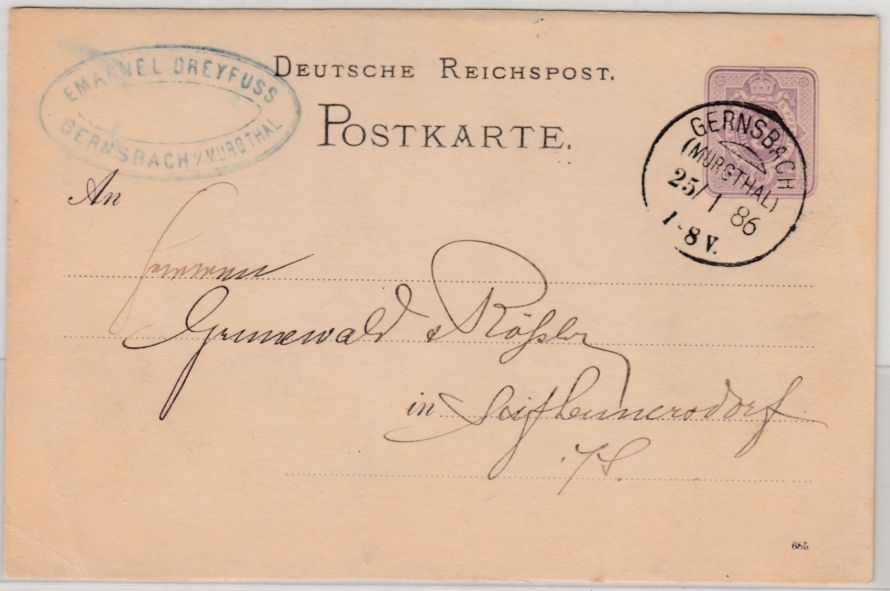 EMANUEL DREYFUSS
GERNSBACH / MURGTHAL
DEUTSCHE REICHSPOST.
POSTKARTE.
GERNSBACH
(MURGTHAL)
25/1 86
1-8 V.
An
Herren
Grunewald & Rößler
in Seifhennersdorf
i/S.
685